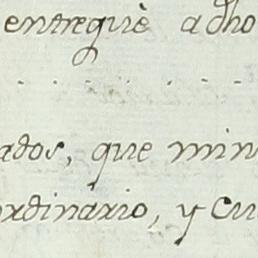 entreguè adho
ados, que min
ordinario, y cu